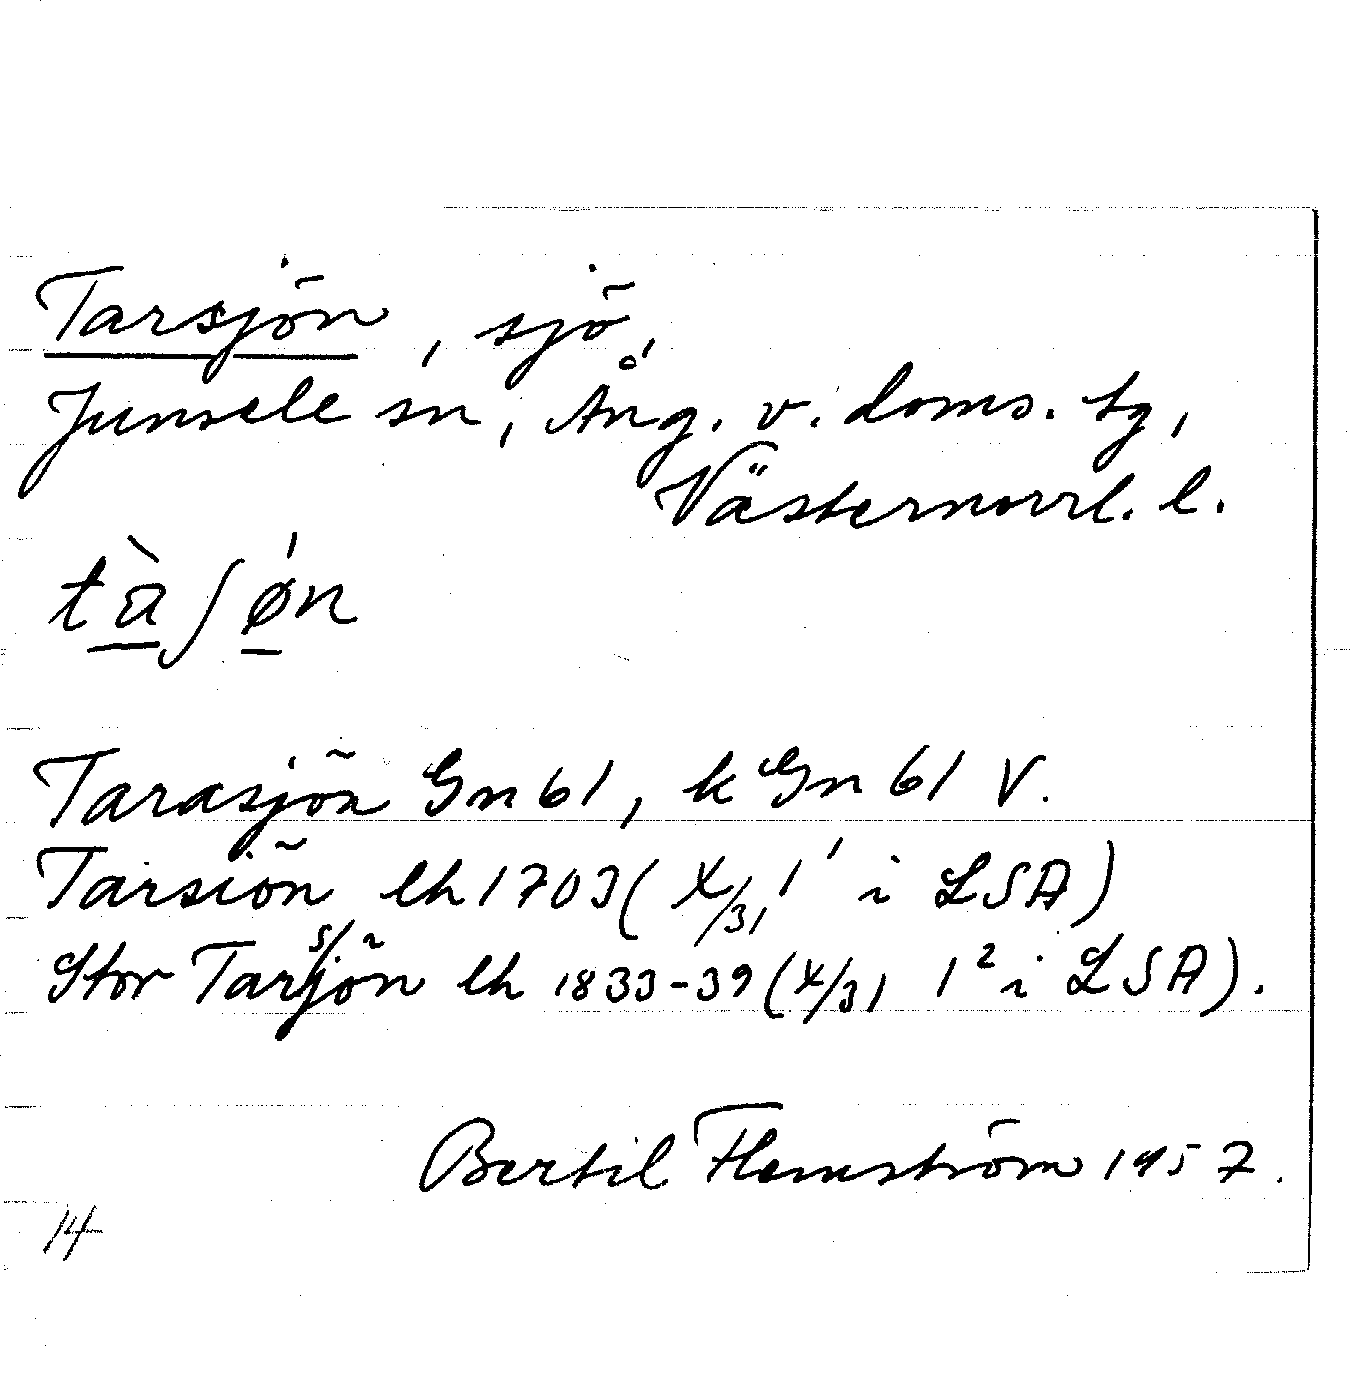 Tarsjön, sjö,
Junsele sn, Ång. v. doms. tg,
Västernorrl. l.
tàʃǿn
Tarasjön Gn 61, k Gn 61 V.
Tarsiön lh 1703 (X/31 1¹ i LSA)
Stor Tarsjön lh 1833-39 (X/31 1² i LSA).
Bertil Flemström 1957.
14